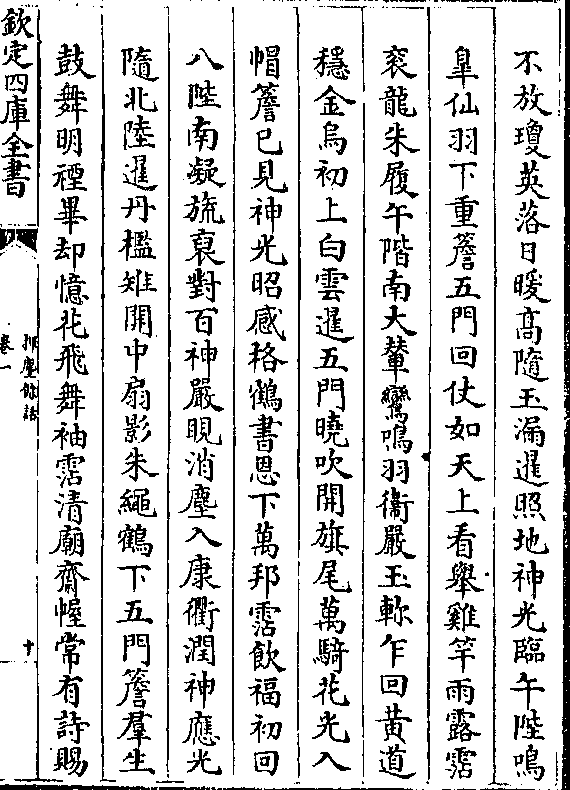 不放瓊英落日暖髙隨玉漏暹照地神光臨午陛鳴
臯仙羽下重簷五門回仗如天上看舉雞竿雨露霑
衮龍朱履午階南大輦鸞鳴羽衞嚴玉軫乍回黄道
穩金烏初上白雲暹五門曉吹開旗尾萬騎花光入
帽簷已見神光昭感格鶴書恩下萬邦霑飲福初回
八陛南凝旒裒對百神嚴晛消塵入康衢潤神應光
隨北陸暹丹檻雉開中扇影朱繩鶴下五門簷羣生
鼓舞明禋畢却憶花飛舞袖霑清廟齋幄常有詩賜
欽定四庫全書
揮麈餘話
卷一
十